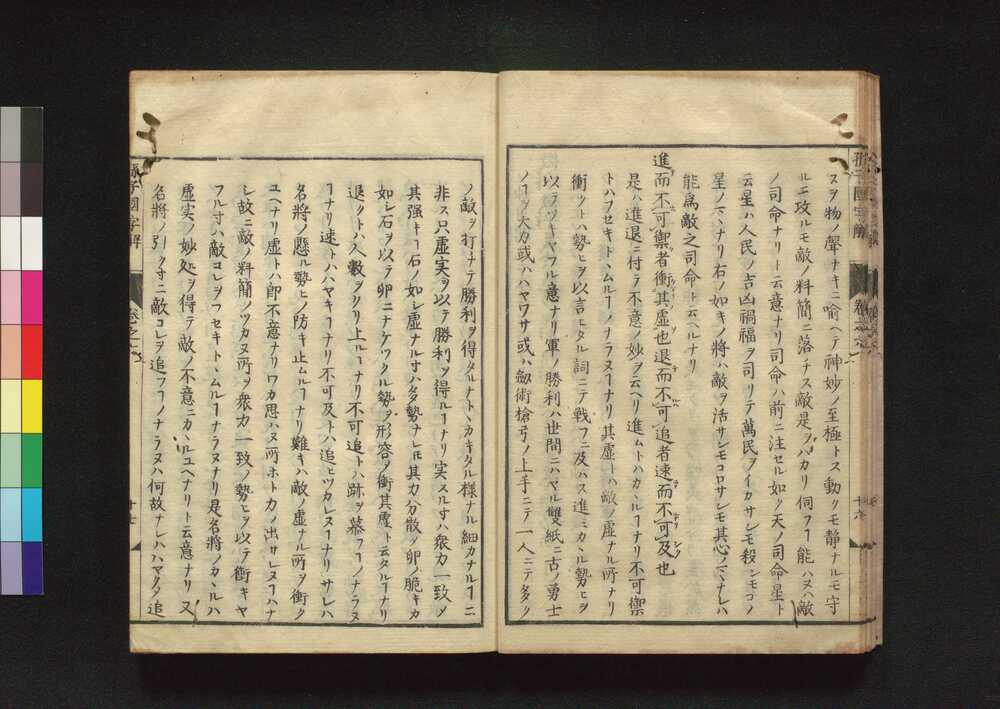 スヲ物ノ聲ナキニ喩ヘテ神妙ノ至極トス動クモ静ナルモ守
ルモ攻ルモ敵ノ料簡ニ落チス敵是ヲハカリ伺フ𪜈能ハヌハ敵
ノ司命ナリト云意ナリ司命ハ前ニ注セル如ク天ノ司命星ト
云星ハ人民ノ吉凶禍福ヲ司リテ萬民ヲイカサンモ殺サンモコノ
星ノマヽナリ右ノ如キノ將ハ敵ヲ活サンモコロサンモ其心ノマヽナレハ
能爲敵之司命ト云ヘルナリ
進而不可禦者衝其虛也退而不可追者速而不可及也
是ハ進退ニ付テ不意ノ妙ヲ云ヘリ進ムトハカヽルヿナリ不可禦
トハフセキトヽムルヿノナラヌヿナリ其虛トハ敵ノ虛ナル所ナリ
衝ツトハ勢ヒヲ以言ヒタル詞ニテ戰フニ及ハス進ミカヽル勢ヒヲ
以テツキヤフル意ナリ軍ノ勝利ハ世間ニハマル雙紙ニ古ノ勇士
ノヿヲ大力或ハハヤワサ或ハ劔術槍弓ノ上手ニテ一人ニテ多クノ
ノ敵ヲ打ナテ勝利ヲ得タルナトヽカキタル様ナル細カナルヿニ
非ス只虛実ヲ以テ勝利ヲ得ルヿナリ実スル寸ハ衆力一致メ
其强キヿ石ノ如シ虛ナル寸ハ多勢ナレ𪜈其力分散メ卵ノ脆キカ
如シ石ヲ以テ卵ニナケツクル勢ヲ形容メ衝其虛ト云タルヿナリ
退クトハ人數ヲクリ上ルヿナリ不可追トハ跡ヲ慕フヿノナラヌ
ヿナリ速トハハヤキヿナリ不可及トハ追ヒツカレヌヿナリサレハ
名將ノ懸ル勢ヒノ防キ止ムルヿナリ難キハ敵ノ虛ナル所ヲ衝ク
ユヘナリ虛トハ即不意ナリワカ思ハヌ所ホト力ノ出サレヌヿハナ
シ故ニ敵ノ料簡ノツカヌ所ヲ衆力一致ノ勢ヒヲ以テ衝キヤ
フル寸ハ敵コレヲフセキトヽムルヿナラヌナリ是名將ノカヽルハ
虛実ノ妙処ヲ得テ敵ノ不意ニカヽルユヘナリト云意ナリ又
名將ノ引クヰニ敵コレヲ追フヿノナラヌハ何故ナレハハマタ追
孫子國字解
卷之六
十七